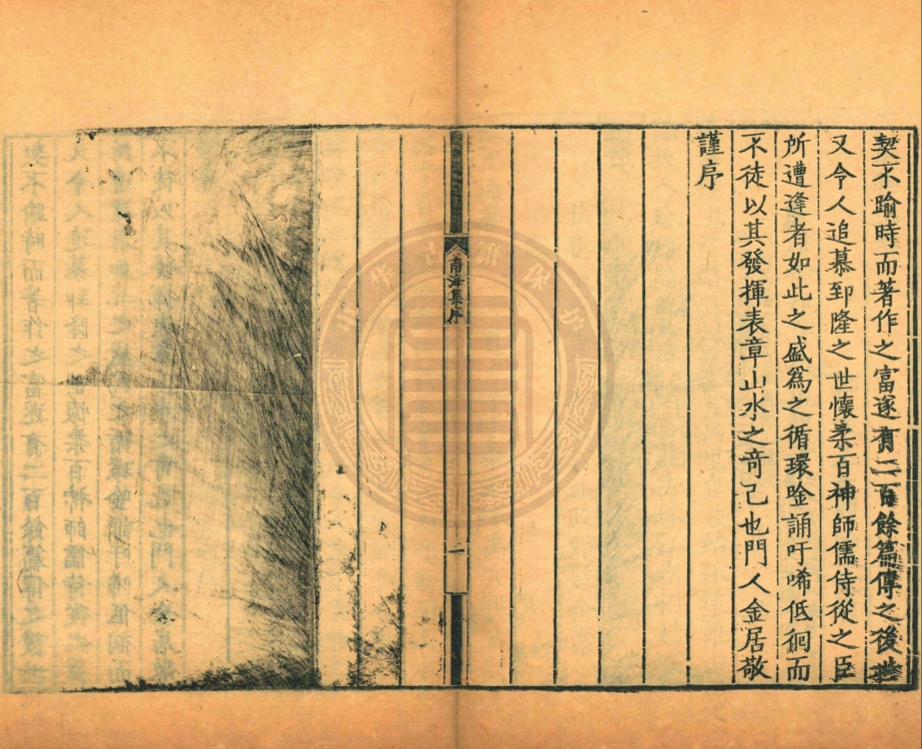 契不踰時而著作之富遂有二百餘篇傳之後世
又令人追慕郅隆之世懷柔百神師儒侍從之臣
所遭逢者如此之盛爲之循環唫誦吁唏低徊而
不徒以其發揮表章山水之奇己也門人金居敬
謹序
南海集序
一